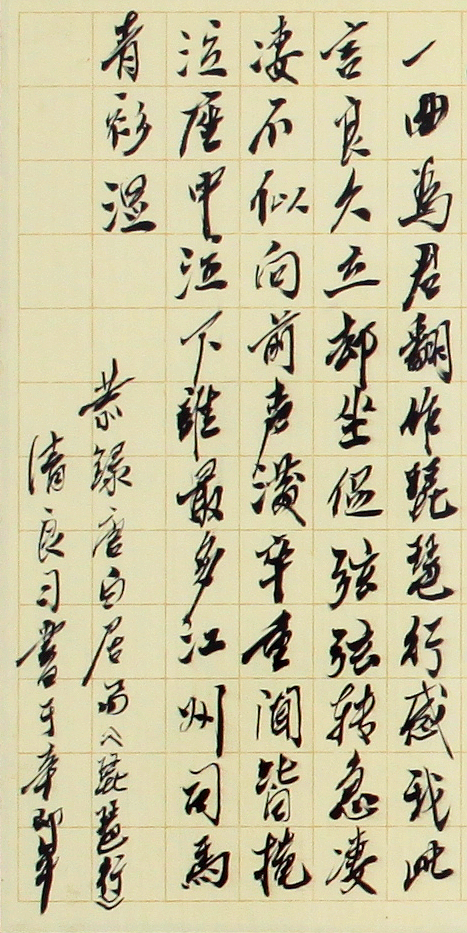 一曲為君翻作琵琶行感我此
言良久立却坐促弦弦转急凄
凄不似向前声满座重闻皆掩
泣座中泣下誰最多江州司馬
青衫湿
恭録唐白居易《琵琶行》
清良习書于辛卯年